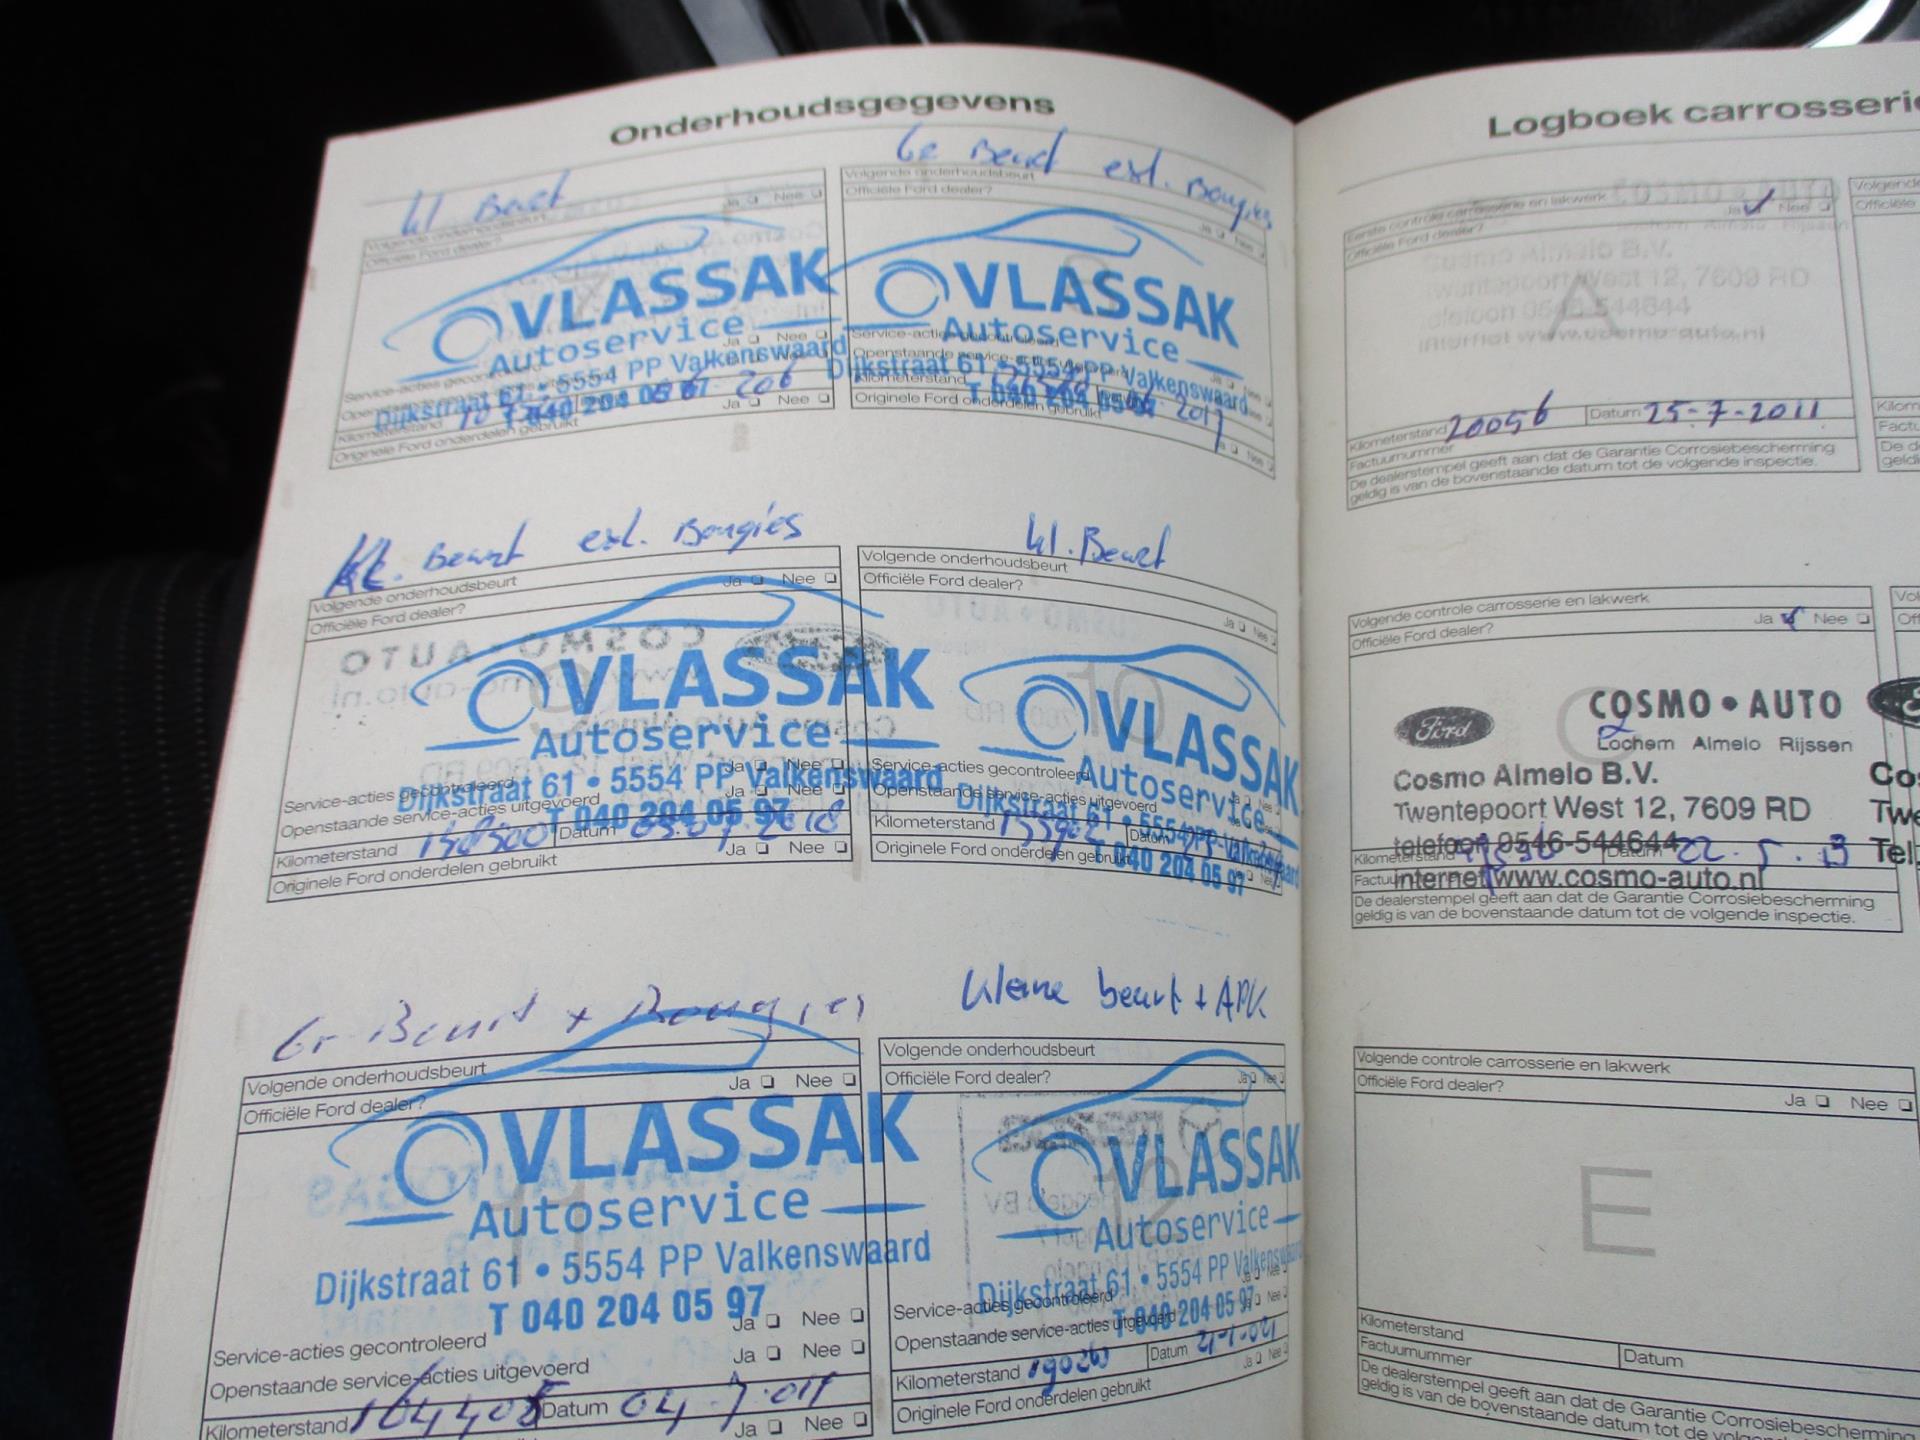 Onderhoudsgegevens
Kl Beurt
Volgende onderhoudsbeurt
Officiële Ford dealer?
Ja Nee
VLASSAK
Autoservice
Dijkstraat 61 • 5554 PP Valkenswaard
T 040 204 05 97
Kilometerstand
Ja Nee
Originele Ford onderdelen gebruikt
Gr Beurt exl. Bougies
Volgende onderhoudsbeurt
Officiële Ford dealer?
Ja Nee
VLASSAK
Autoservice
Dijkstraat 61 • 5554 PP Valkenswaard
T 040 204 05 97
Kilometerstand
2017
Originele Ford onderdelen gebruikt
Ja Nee
Beurt exl. Bougies
Volgende onderhoudsbeurt
Officiële Ford dealer?
Ja Nee
9
VLASSAK
Autoservice
Dijkstraat 61 • 5554 PP Valkenswaard
T 040 204 05 97
Service-acties gecontroleerd
Ja Nee
Openstaande service-acties uitgevoerd
Ja Nee
Kilometerstand Datum 2018
Originele Ford onderdelen gebruikt
Ja Nee
Kl. Beurt
Volgende onderhoudsbeurt
Officiële Ford dealer?
Ja Nee
10
VLASSAK
Autoservice
Dijkstraat 61 • 5554 PP Valkenswaard
T 040 204 05 97
Service-acties gecontroleerd
Openstaande service-acties uitgevoerd
Kilometerstand Datum
Originele Ford onderdelen gebruikt
Gr Beurt + Bougies
Volgende onderhoudsbeurt
Officiële Ford dealer?
Ja Nee
11
VLASSAK
Autoservice
Dijkstraat 61 • 5554 PP Valkenswaard
T 040 204 05 97
Service-acties gecontroleerd
Ja Nee
Openstaande service-acties uitgevoerd
Ja Nee
Kilometerstand 164408 Datum
Ja Nee
Kleine beurt + APK
Volgende onderhoudsbeurt
Officiële Ford dealer?
Ja Nee
12
VLASSAK
Autoservice
Dijkstraat 61 • 5554 PP Valkenswaard
T 040 204 05 97
Service-acties gecontroleerd
Openstaande service-acties uitgevoerd
Kilometerstand Datum
Originele Ford onderdelen gebruikt
Ja Nee
Logboek carrosserie
Eerste controle carrosserie en lakwerk
Officiële Ford dealer?
Ja Nee
COSMO • AUTO
Lochem Almelo Rijssen
Cosmo Almelo B.V.
Twentepoort West 12, 7609 RD
telefoon 0546-544644
internet www.cosmo-auto.nl
A
Kilometerstand 20056 Datum 25-7-2011
Factuurnummer
De dealerstempel geeft aan dat de Garantie Corrosiebescherming
geldig is van de bovenstaande datum tot de volgende inspectie.
Volgende controle carrosserie en lakwerk
Officiële Ford dealer?
Ja Nee
Ford
COSMO • AUTO
Lochem Almelo Rijssen
C
Cosmo Almelo B.V.
Twentepoort West 12, 7609 RD
telefoon 0546-544644
internet www.cosmo-auto.nl
Kilometerstand Datum 22-5-13
De dealerstempel geeft aan dat de Garantie Corrosiebescherming
geldig is van de bovenstaande datum tot de volgende inspectie.
Volgende controle carrosserie en lakwerk
Officiële Ford dealer?
Ja Nee
E
Kilometerstand
Factuurnummer
Datum
De dealerstempel geeft aan dat de Garantie Corrosiebescherming
geldig is van de bovenstaande datum tot de volgende inspectie.